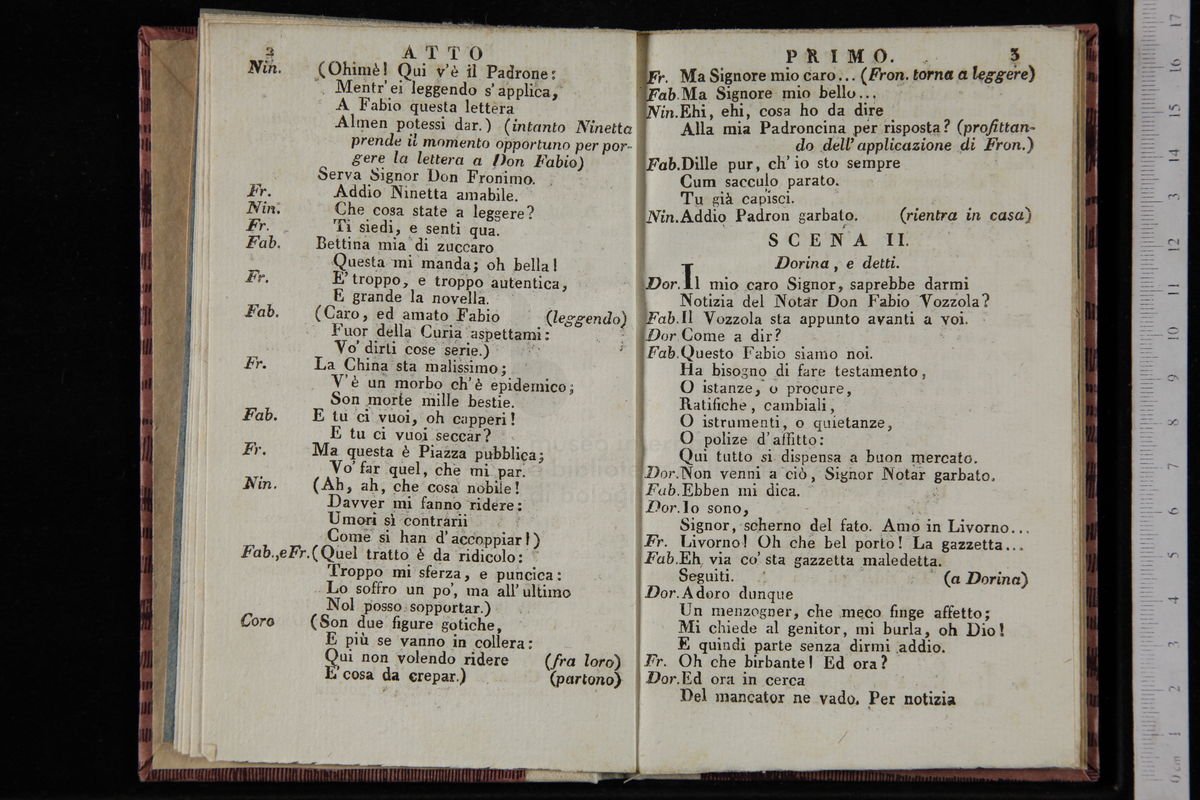 2 ATTO
Nin. (Ohimè! Qui v'è il Padrone:
Mentr' ei leggendo s' applica,
A Fabio questa lettera
Almen potessi dar.) (intanto Ninetta
prende il momento opportuno per por-
gere la lettera a Don Fabio)
Serva Signor Don Fronimo.
Fr. Addio Ninetta amabile.
Nin. Che cosa state a leggere?
Fr. Ti siedi, e senti qua.
Fab. Bettina mia di zuccaro
Questa mi manda; oh bella!
Fr. E' troppo, e troppo autentica,
E grande la novella.
Fab. (Caro, ed amato Fabio (leggendo)
Fuor della Curia aspettami:
Vo' dirti cose serie.)
Fr. La China sta malissimo;
V'è un morbo ch'è epidemico;
Son morte mille bestie.
Fab. E tu ci vuoi, oh capperi!
E tu ci vuoi seccar?
Fr. Ma questa è Piazza pubblica;
Vo' far quel, che mi par.
Nin. (Ah, ah, che cosa nobile!
Davver mi fanno ridere:
Umori sì contrarii
Come si han d'accoppiar!)
Fab.,eFr. (Quel tratto è da ridicolo:
Troppo mi sferza, e puncica:
Lo soffro un po', ma all' ultimo
Nol posso sopportar.)
Coro (Son due figure gotiche,
E più se vanno in collera:
Qui non volendo ridere (fra loro)
E' cosa da crepar.) (partono)
PRIMO. 3
Fr. Ma Signore mio caro... (Fron. torna a leggere)
Fab. Ma Signore mio bello...
Nin. Ehi, ehi, cosa ho da dire
Alla mia Padroncina per risposta? (profittan-
do dell' applicazione di Fron.)
Fab. Dille pur, ch' io sto sempre
Cum sacculo parato.
Tu già capisci.
Nin. Addio Padron garbato. (rientra in casa)
SCENA II.
Dorina, e detti.
Dor. Il mio caro Signor, saprebbe darmi
Notizia del Notar Don Fabio Vozzola?
Fab. Il Vozzola sta appunto avanti a voi.
Dor Come a dir?
Fab. Questo Fabio siamo noi.
Ha bisogno di fare testamento,
O istanze, o procure,
Ratifiche, cambiali,
O istrumenti, o quietanze,
O polize d'affitto:
Qui tutto si dispensa a buon mercato.
Dor. Non venni a ciò, Signor Notar garbato.
Fab. Ebben mi dica.
Dor. Io sono,
Signor, scherno del fato. Amo in Livorno...
Fr. Livorno! Oh che bel porto! La gazzetta...
Fab. Eh via co' sta gazzetta maledetta.
Seguiti. (a Dorina)
Dor. Adoro dunque
Un menzogner, che meco finge affetto;
Mi chiede al genitor, mi burla, oh Dio!
E quindi parte senza dirmi addio.
Fr. Oh che birbante! Ed ora?
Dor. Ed ora in cerca
Del mancator ne vado. Per notizia
0 cm 1 2 3 4 5 6 7 8 9 10 11 12 13 14 15 16 17